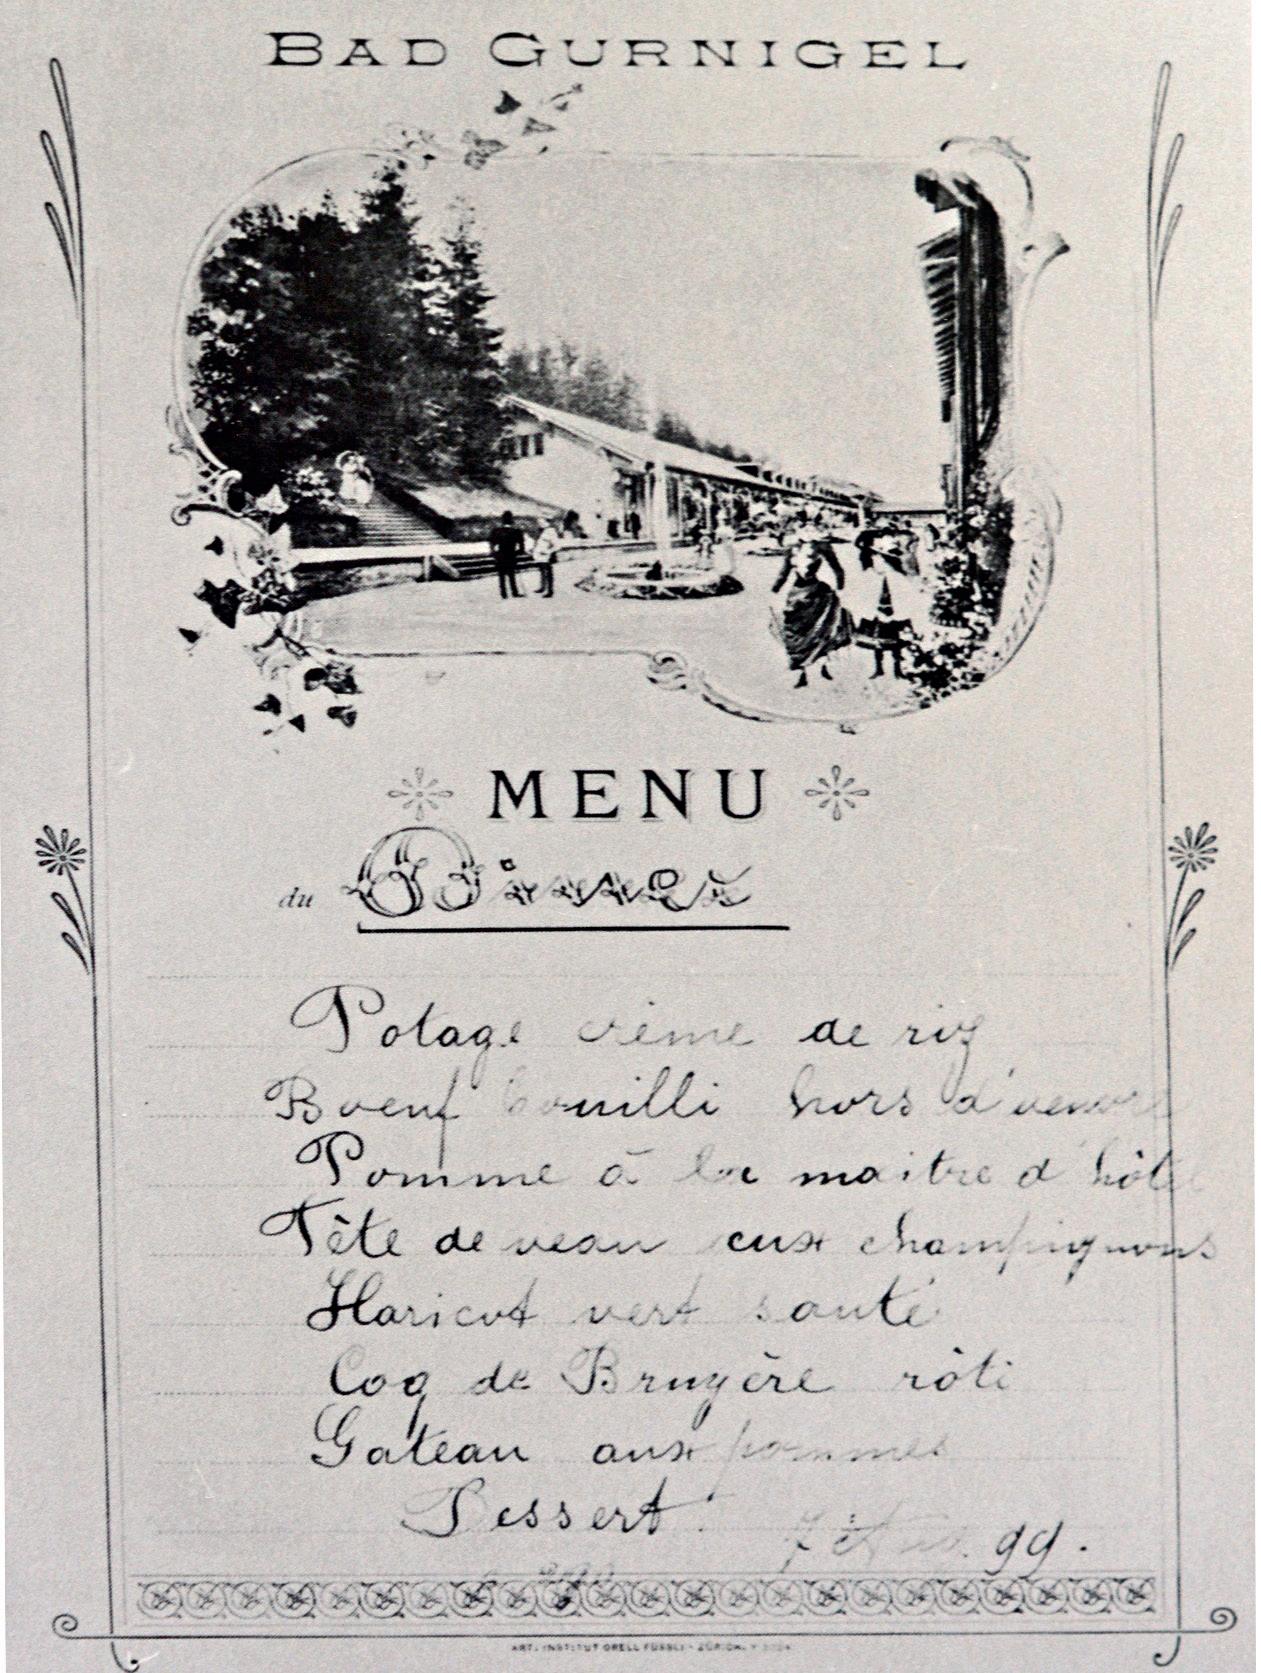 BAD GURNIGEL
MENU
du Dinner
Potage crème de riz
Boeuf bouilli hors d'oeuvre
Pomme à la maitre d'hôtel
Tête de veau aux champignons
Haricot vert sauté
Coq de Bruyère rôti
Gateau aux pommes
Dessert.
99.
ART. INSTITUT ORELL FÜSSLI - ZÜRICH.